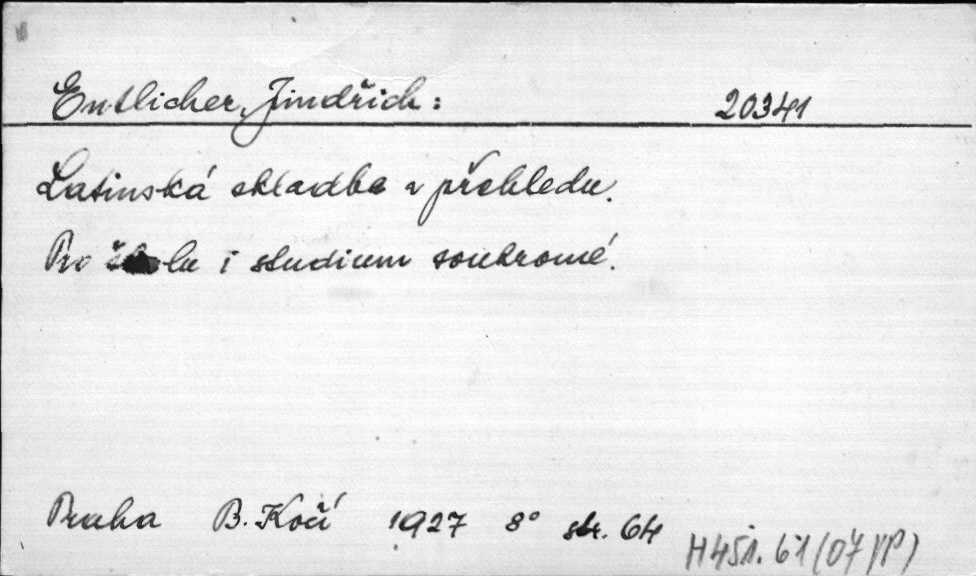 Entlicher, Jindřich: 20341
Latinská skladba v přehledu.
Pro školu i studium soukromé.
Praha B. Kočí 1927 8° str. 64
H 451. 61 (07)(P)